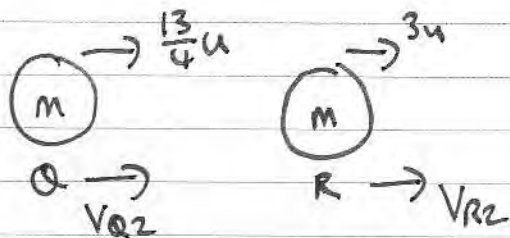 13/4 u 3u
m m
Q R
V_Q2 V_R2